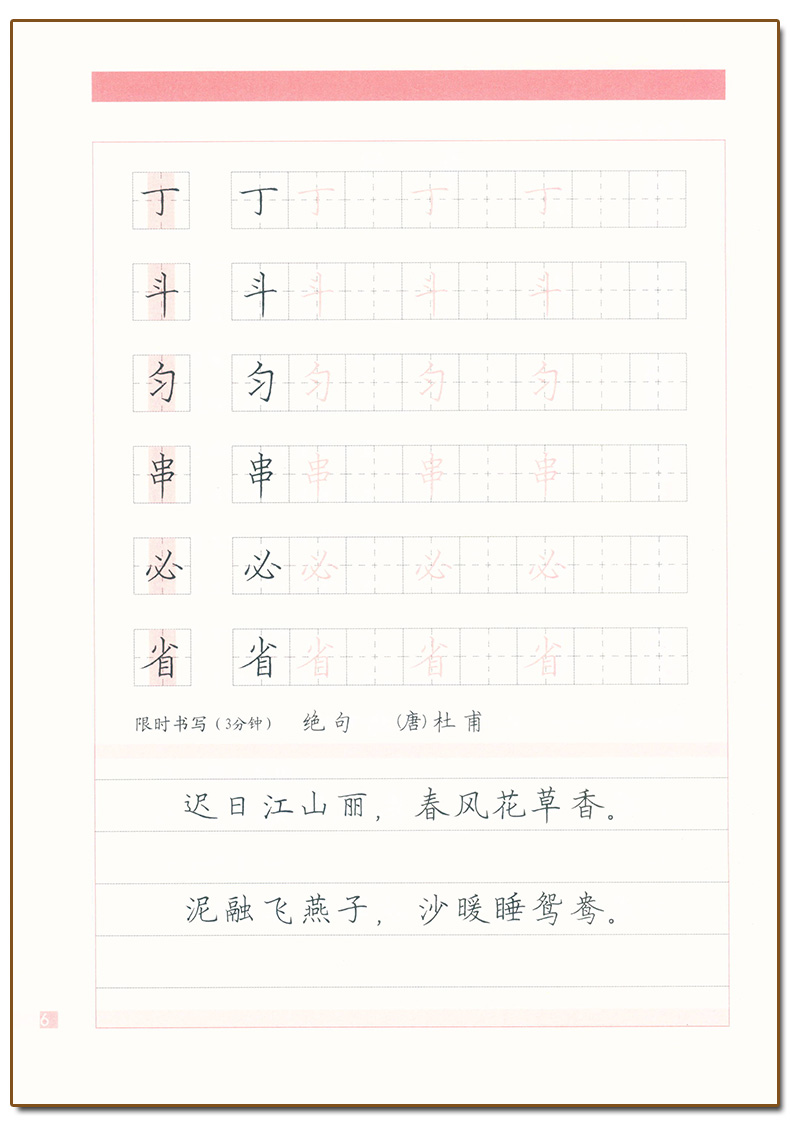 丁 丁 丁 丁 丁
斗 斗 斗 斗 斗
匀 匀 匀 匀 匀
串 串 串 串 串
必 必 必 必 必
省 省 省 省 省
限时书写（3分钟） 绝句 （唐）杜甫
迟日江山丽，春风花草香。
泥融飞燕子，沙暖睡鸳鸯。
6